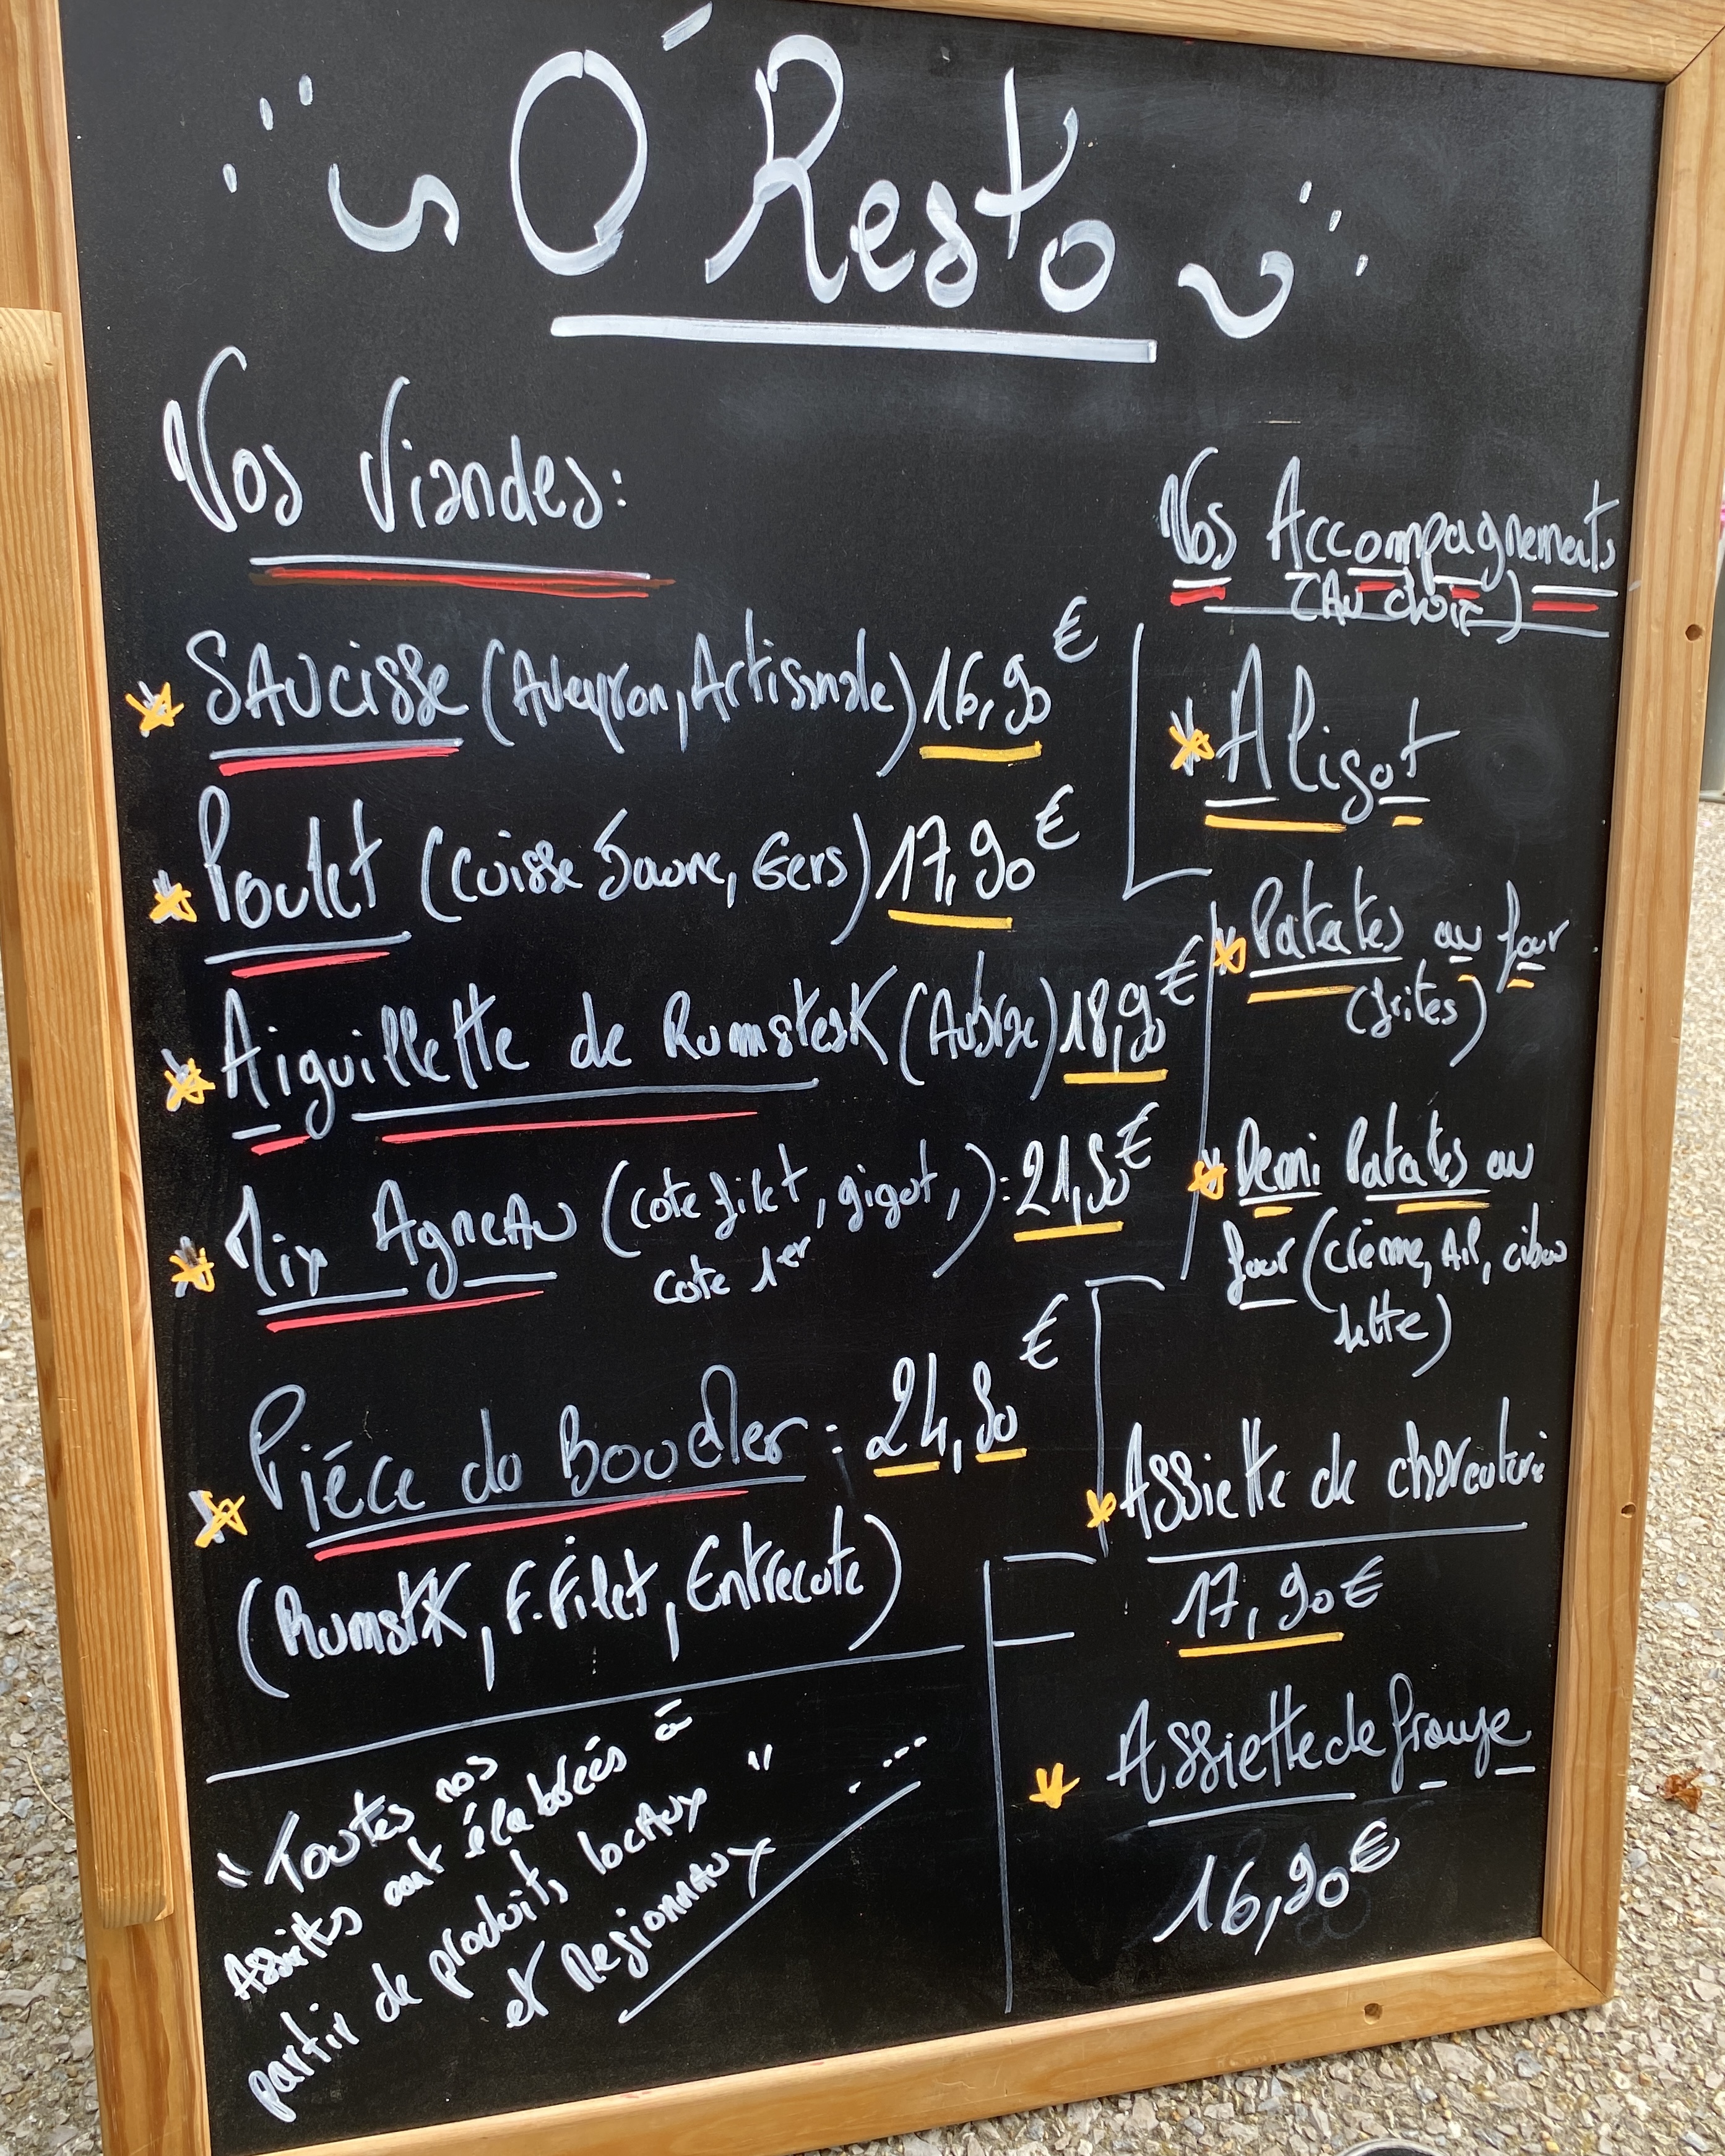 O'Resto
Vos Viandes:
SAUcisse (Aveyron, Artisanale) 16,90€
Poulet (Cuisse Jaune, Gers) 17,90€
Aiguillette de Rumsteak (Aubrac) 18,90€
Mix AgneAu (cote filet, gigot,): 21,90€
cote 1er
Piéce du Boucher: 24,90€
(RumstK, F.Filet, Entrecote)
"Toutes nos
Assiettes sont élaborées à
partir de produits locAux
et RegionnAux"
Vos Accompagnements
(Au choix)
Aligot
Patates au four
(frites)
Demi Patates au
four (crème, Ail, cibou
lette)
Assiette de charcuterie
17,90€
Assiette de
16,90€